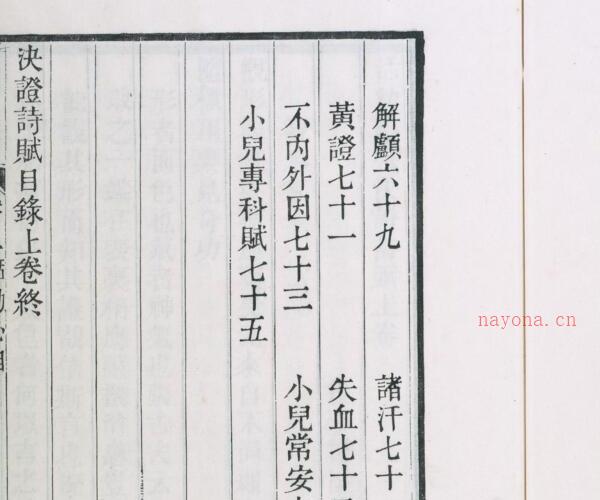 解顱六十九 諸汗七十
黃證七十一 失血七十
不內外因七十三 小兒常安
小兒專科賦七十五
決證詩賦目錄上卷終
nayona.cn